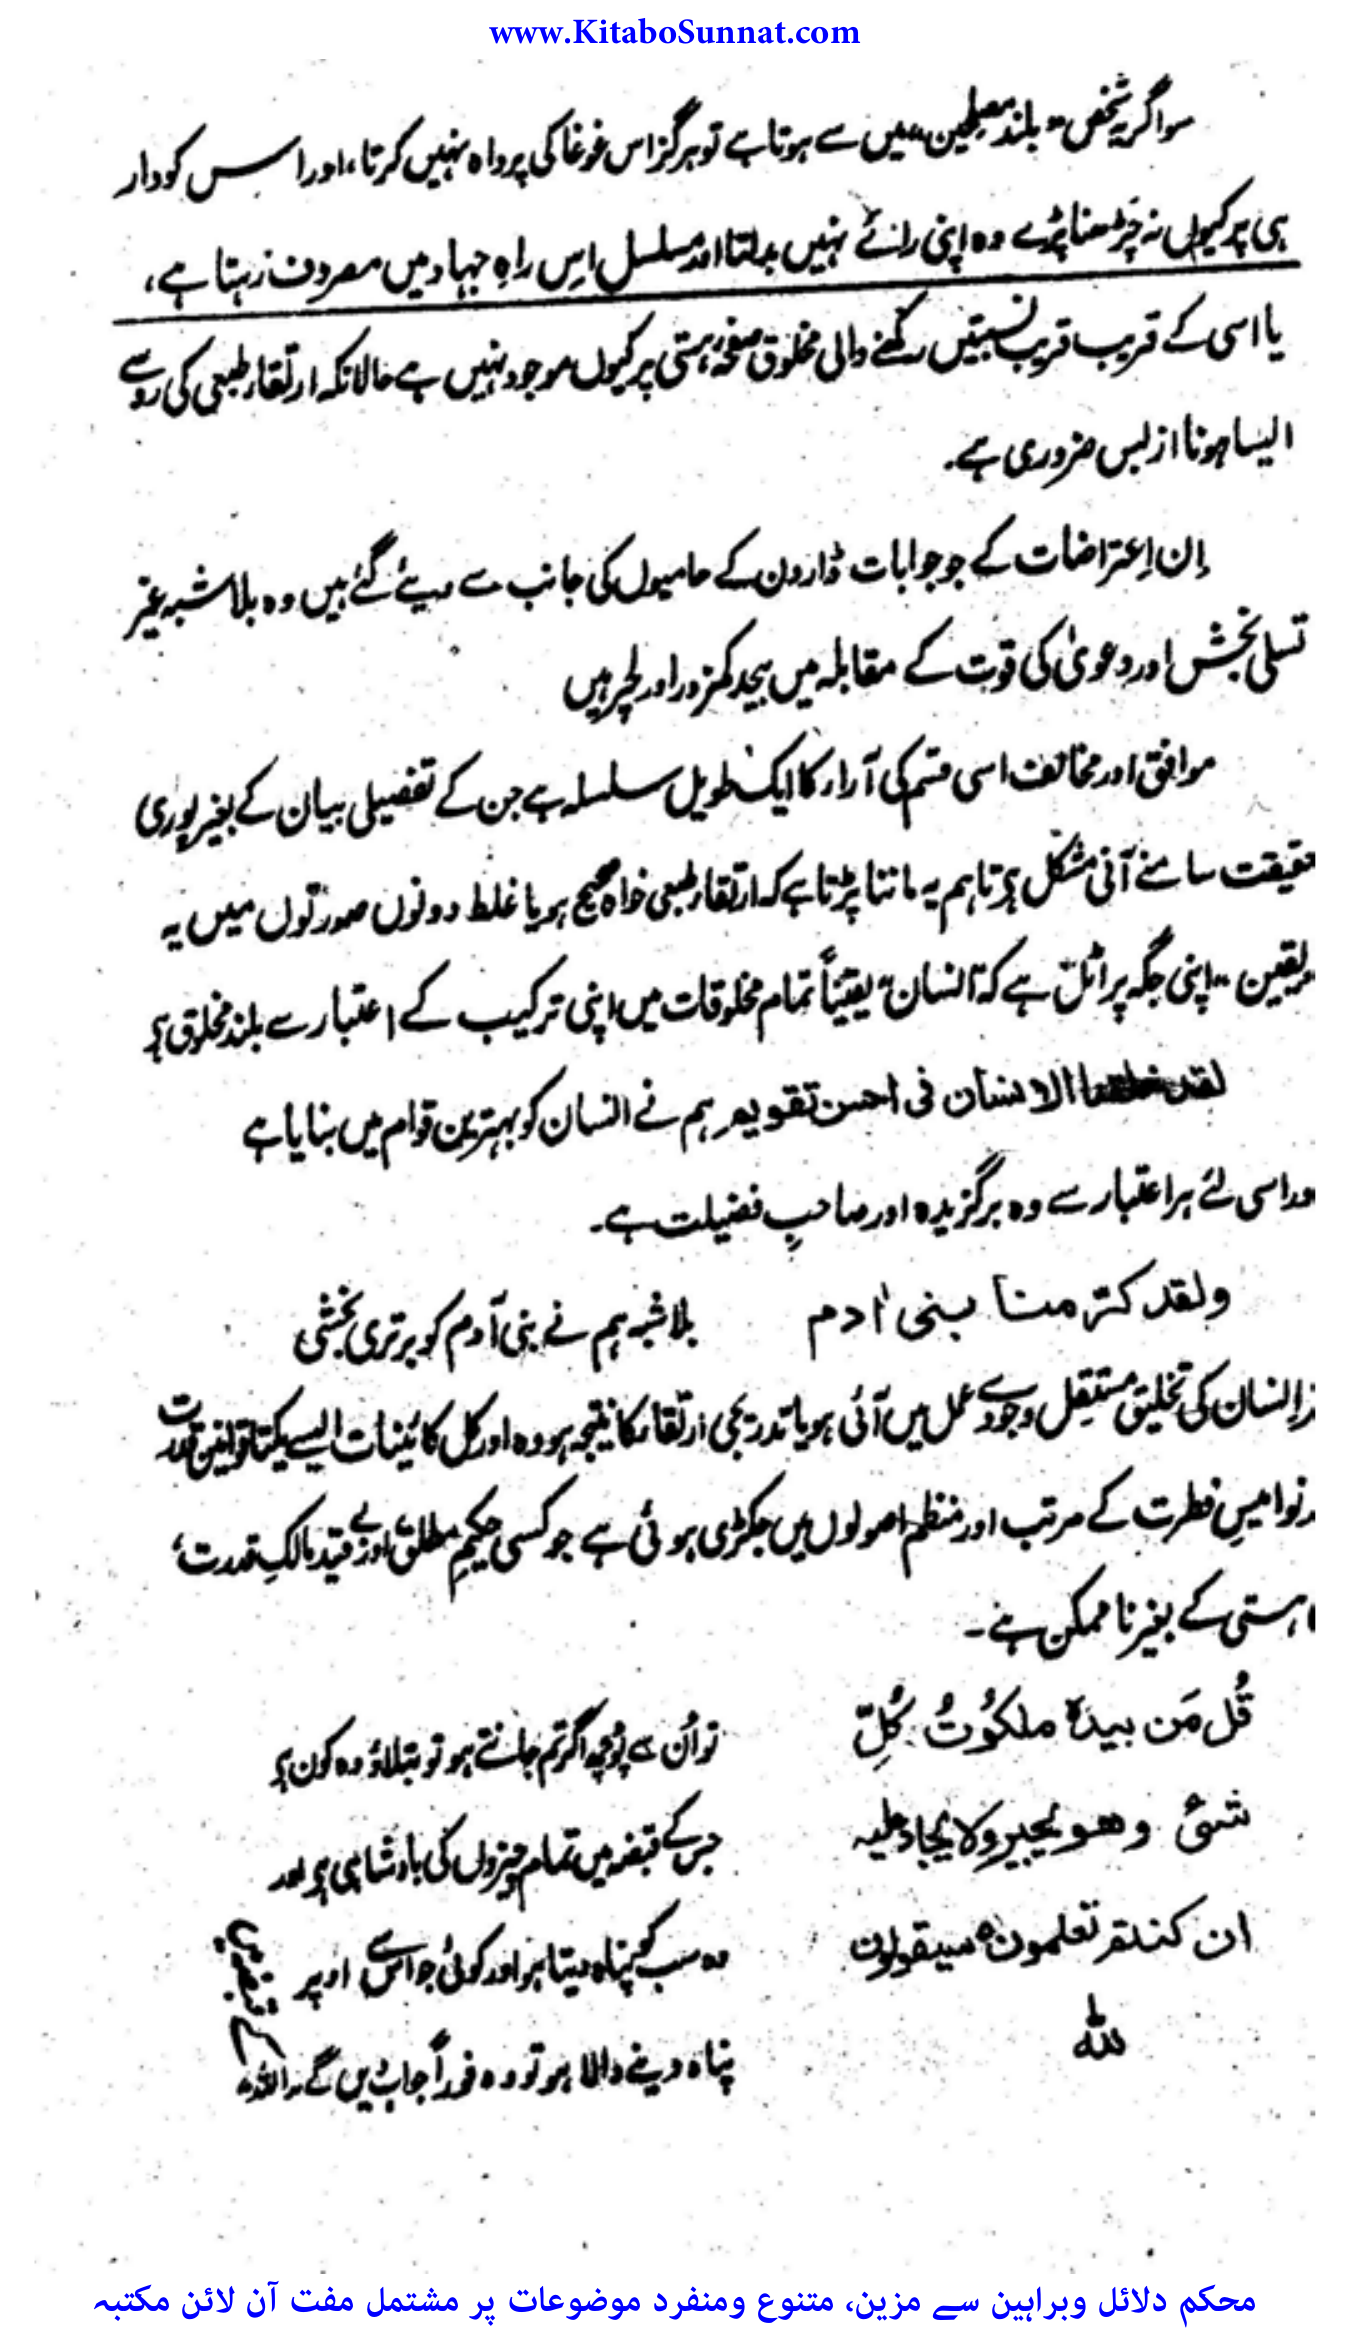 www.KitaboSunnat.com
سو اگر یہ شخص "بلند مصلحین" میں سے ہوتا ہے تو ہرگز اس غوغا کی پرواہ نہیں کرتا، اور اس کو دار
ہی پر کیوں نہ چڑھنا پڑے وہ اپنی رائے نہیں بدلتا اور مسلسل اِس راہِ جہاد میں مصروف رہتا ہے،
یا اسی کے قریب قریب نسبتیں رکھنے والی مخلوق صفحۂ ہستی پر کیوں موجود نہیں ہے حالانکہ ارتقاء طبعی کی رو سے
ایسا ہونا از بس ضروری ہے۔
اِن اِعتراضات کے جو جوابات ڈارون کے حامیوں کی جانب سے دیئے گئے ہیں وہ بلاشبہ غیر
تسلی بخش اور دعویٰ کی قوت کے مقابلہ میں بیحد کمزور اور لچر ہیں
موافق اور مخالف اسی قسم کی آراء کا ایک طویل سلسلہ ہے جن کے تفصیلی بیان کے بغیر پوری
حقیقت سامنے آنی مشکل ہے تاہم یہ ماننا پڑتا ہے کہ ارتقاء طبعی خواہ صحیح ہو یا غلط دونوں صورتوں میں یہ
یقین" اپنی جگہ پر اٹل ہے کہ "انسان" یقیناً تمام مخلوقات میں اپنی ترکیب کے اعتبار سے بلند مخلوق ہے
لقد خلقنا الانسان فی احسن تقویم ہم نے انسان کو بہترین قوام میں بنایا ہے
اور اسی لئے ہر اعتبار سے وہ برگزیدہ اور صاحبِ فضیلت ہے۔
ولقد کرّمنا بنی اٰدم بلاشبہ ہم نے بنی آدم کو برتری بخشی
انسان کی تخلیق مستقل وجود سے عمل میں آئی ہو یا تدریجی ارتقاء کا نتیجہ ہو وہ اور کل کائینات ایسے یکتا قوانین قدرت
نوامیسِ فطرت کے مرتب اور منظم اصولوں میں جکڑی ہوئی ہے جو کسی حکیمِ مطلق اور بے قید مالکِ قدرت،
ہستی کے بغیر ناممکن ہے۔
قُل مَن بیدہٖ ملکُوتُ کُلِّ تو اُن سے پُوچھ اگر تم جانتے ہو تو بتلاؤ وہ کون ہے
شئی وھو یجیر ولا یجار علیہ جس کے قبضہ میں تمام چیزوں کی بادشاہی ہے اور
ان کنتم تعلمون ہ سیقولون وہ سب کو پناہ دیتا ہو اور کوئی جو اس سے اوپر
للّٰہ پناہ دینے والا ہو تو وہ فوراً جواب دیں گے "اللہ"
محکم دلائل وبراہین سے مزین، متنوع ومنفرد موضوعات پر مشتمل مفت آن لائن مکتبہ